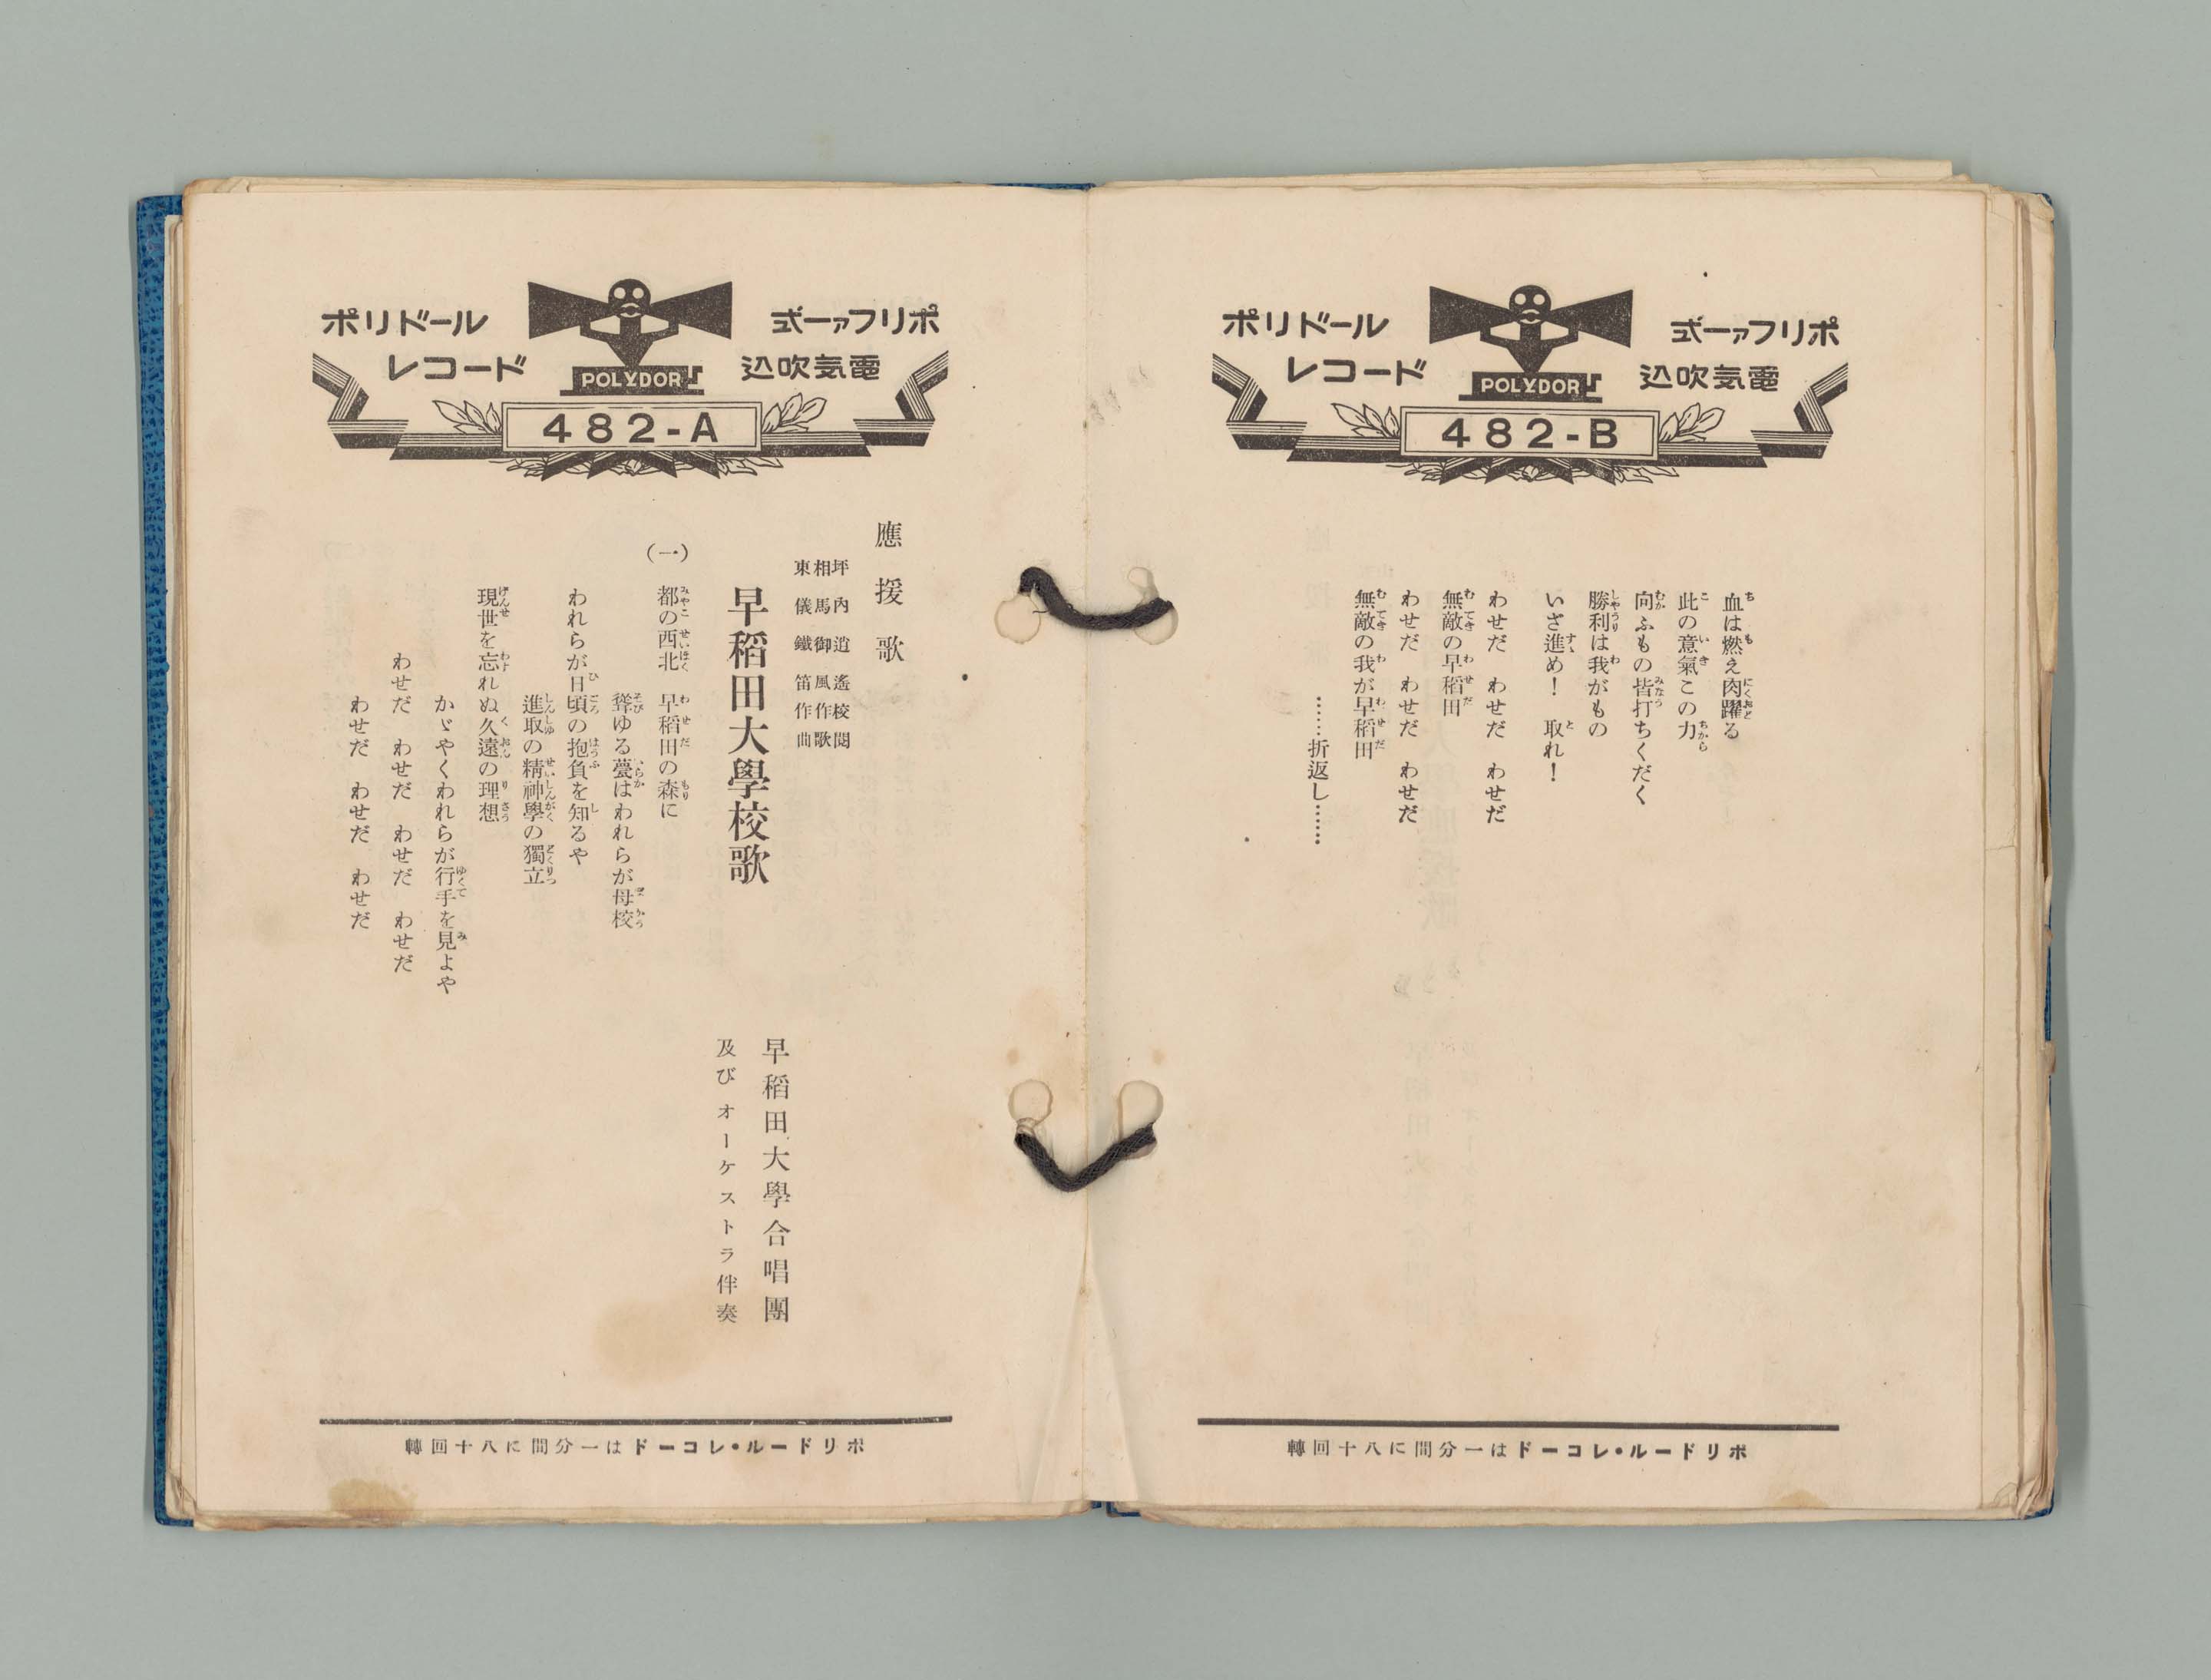 ポリドール
レコード
ポリファー式
電気吹込
POLYDOR
482-B
血は燃え肉躍る
此の意氣この力
向ふもの皆打ちくだく
勝利は我がもの
いさ進め！　取れ！
わせだ　わせだ　わせだ
無敵の早稲田
わせだ　わせだ　わせだ
無敵の我が早稲田
……折返し……
ポリドール・レコードは一分間に八十回轉
ポリドール
レコード
ポリファー式
電気吹込
POLYDOR
482-A
應援歌
坪内逍遙校閲
相馬御風作歌
東儀鐵笛作曲
早稲田大學校歌
早稲田大學合唱團
及びオーケストラ伴奏
（一）
都の西北　早稲田の森に
聳ゆる甍はわれらが母校
われらが日頃の抱負を知るや
進取の精神學の獨立
現世を忘れぬ久遠の理想
かゞやくわれらが行手を見よや
わせだ　わせだ　わせだ　わせだ
わせだ　わせだ　わせだ
ポリドール・レコードは一分間に八十回轉